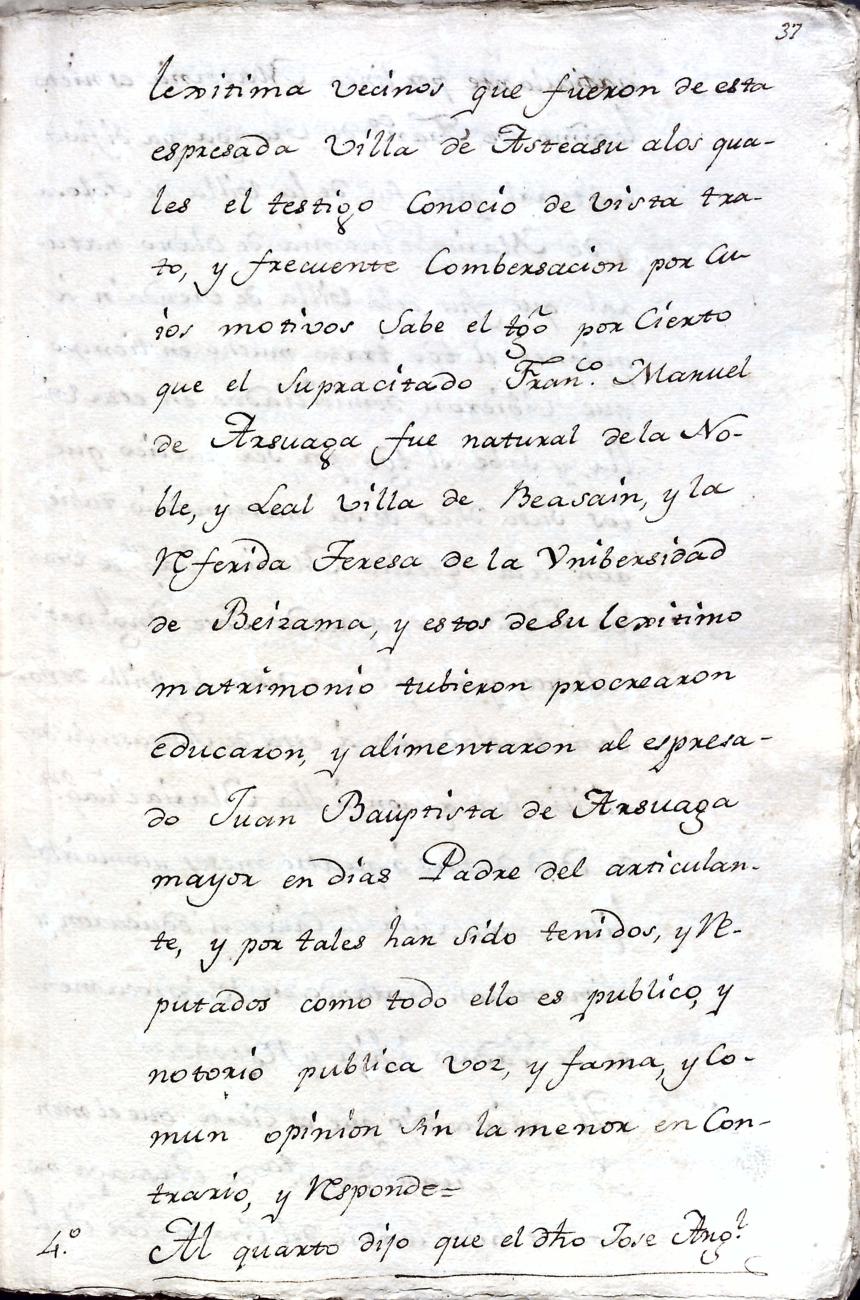 37
lexitima vecinos que fueron de esta
espresada Villa de Asteasu alos qua-
les el testigo Conocio de vista tra-
to, y frecuente Combersacion por Cu
ios motivos Sabe el tgõ por Cierto
que el Supracitado Fran.co Manuel
de Arsuaga fue natural dela No-
ble, y Leal Villa de Beasain, y la
Referida Teresa de la Vnibersidad
de Beizama, y estos de su lexitimo
matrimonio tubieron procrearon
educaron, y alimentaron al espresa-
do Juan Bauptista de Arsuaga
mayor en dias Padre del articulan-
te, y por tales han sido tenidos, y Re-
putados como todo ello es publico, y
notorio publica voz, y fama, y Co-
mun opinion sin la menor en Con-
trario, y Responde=
4.º Al quarto dijo que el dho Jose Ang.l